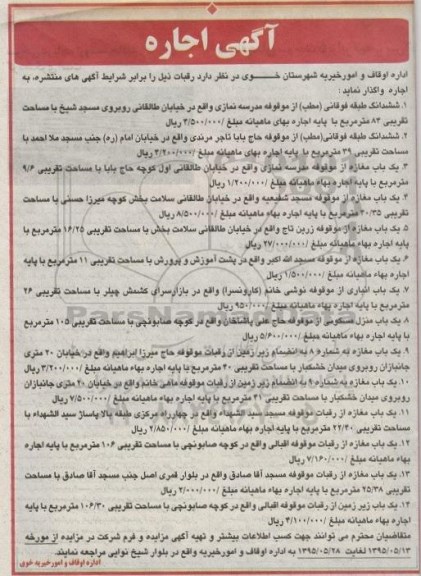 آگهی اجاره
اداره اوقاف و امورخیریه شهرستان خـــوی در نظر دارد رقبات ذیل را برابر شرایط آگهی های منتشره، به
اجاره واگذار نماید:
۱. ششدانگ طبقه فوقانی (مطب) از موقوفه مدرسه نمازی واقع در خیابان طالقانی روبروی مسجد شیخ با مساحت
تقریبی ۸۴ مترمربع با پایه اجاره بهای ماهیانه مبلغ /۴/۵۰۰/۰۰۰ ریال
۲. ششدانگ طبقه فوقانی(مطب) از موقوفه حاج بابا تاجر مرندی واقع در خیابان امام (ره) جنب مسجد ملا احمد با
مساحت تقریبی ۳۹ مترمربع با پایه اجاره بهای ماهیانه مبلغ /۴/۲۰۰/۰۰۰ ریال
۳. یک باب مغازه از موقوفه مدرسه نمازی واقع در خیابان طالقانی اول کوچه حاج بابا با مساحت تقریبی ۹/۶
مترمربع با پایه اجاره بهاء ماهیانه مبلغ /۱/۲۰۰/۰۰۰ ریال
۴. یک باب مغازه از موقوفه مسجد شفیعیه واقع در خیابان طالقانی سلامت بخش کوچه میرزا حسنی با مساحت
تقریبی ۳۰/۳۵ مترمربع با پایه اجاره بهاء ماهیانه مبلغ /۸/۵۰۰/۰۰۰ ریال
۵. یک باب مغازه از موقوفه زرین تاج واقع در خیابان طالقانی سلامت بخش با مساحت تقریبی ۱۶/۲۵ مترمربع با
پایه اجاره بهاء ماهیانه مبلغ /۲۷/۰۰۰/۰۰۰ ریال
۶. یک باب مغازه از موقوفه مسجد الله اکبر واقع در پشت آموزش و پرورش با مساحت تقریبی ۱۱ مترمربع با پایه
اجاره بهاء ماهیانه مبلغ /۱/۵۰۰/۰۰۰ ریال
۷. یک باب انباری از موقوفه نوشی خانم (کاروانسرا) واقع در بازارسرای کشمش چیلر با مساحت تقریبی ۲۶
مترمربع با پایه اجاره بهاء ماهیانه مبلغ /۹۵۰/۰۰۰ ریال
۸. یک باب منزل مسکونی از موقوفه حاج علی پاشاخان واقع در کوچه صابونچی با مساحت تقریبی ۱۰۵ مترمربع
با پایه اجاره بهاء ماهیانه مبلغ /۵/۶۰۰/۰۰۰ ریال
۹. یک باب مغازه به شماره ۸ به انضمام زیر زمین از رقبات موقوفه حاج میرزا ابراهیم واقع در خیابان ۲۰ متری
جانبازان روبروی میدان خشکبار با مساحت تقریبی ۴۰ مترمربع با پایه اجاره بهاء ماهیانه مبلغ /۳/۲۰۰/۰۰۰ ریال
۱۰. یک باب مغازه به شماره ۹ به انضمام زیر زمین از رقبات موقوفه ماهی خانم واقع در خیابان ۲۰ متری جانبازان
روبروی میدان خشکبار با مساحت تقریبی ۳۱ مترمربع با پایه اجاره بهاء ماهیانه مبلغ /۷/۵۰۰/۰۰۰ ریال
۱۱. یک باب مغازه از رقبات موقوفه مسجد سید الشهداء واقع در چهارراه مرکزی طبقه بالا پاساژ سید الشهداء با
مساحت تقریبی ۲۲/۴۰ مترمربع با پایه اجاره بهاء ماهیانه مبلغ /۲/۸۵۰/۰۰۰ ریال
۱۲. یک باب مغازه از رقبات موقوفه اقبالی واقع در کوچه صابونچی با مساحت تقریبی ۱۰۶ مترمربع با پایه اجاره
بهاء ماهیانه مبلغ /۷/۱۶۰/۰۰۰ ریال
۱۳. یک باب مغازه از رقبات موقوفه مسجد آقا صادق واقع در بلوار قمری اصل جنب مسجد آقا صادق با مساحت
تقریبی ۲۵/۳۸ مترمربع با پایه اجاره بهاء ماهیانه مبلغ /۲/۰۰۰/۰۰۰ ریال
۱۴. یک باب زیر زمین از رقبات موقوفه اقبالی واقع در کوچه صابونچی با مساحت تقریبی ۱۰۶/۳۰ مترمربع با پایه
اجاره بهاء ماهیانه مبلغ /۴/۱۰۰/۰۰۰ ریال
متقاضیان محترم می توانند جهت کسب اطلاعات بیشتر و تهیه آگهی مزایده و فرم شرکت در مزایده از مورخه
۱۳۹۵/۰۵/۱۳ لغایت ۱۳۹۵/۰۵/۲۸ به اداره اوقاف و امورخیریه واقع در بلوار شیخ نوایی مراجعه نمایند.
اداره اوقاف و امورخیریه خوی